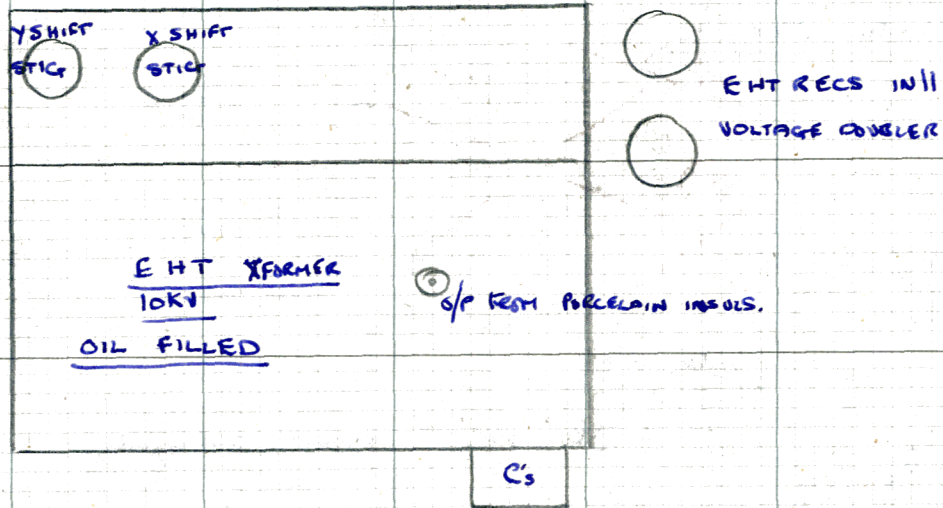 Y SHIFT
STIG
X SHIFT
STIG
EHT RECS IN //
VOLTAGE DOUBLER
EHT XFORMER
10KV
OIL FILLED
O/P FROM PORCELAIN INSULS.
C's